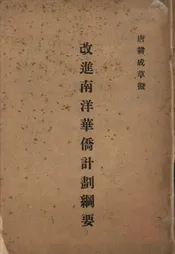 唐緒成草擬
改進南洋華僑計劃綱要